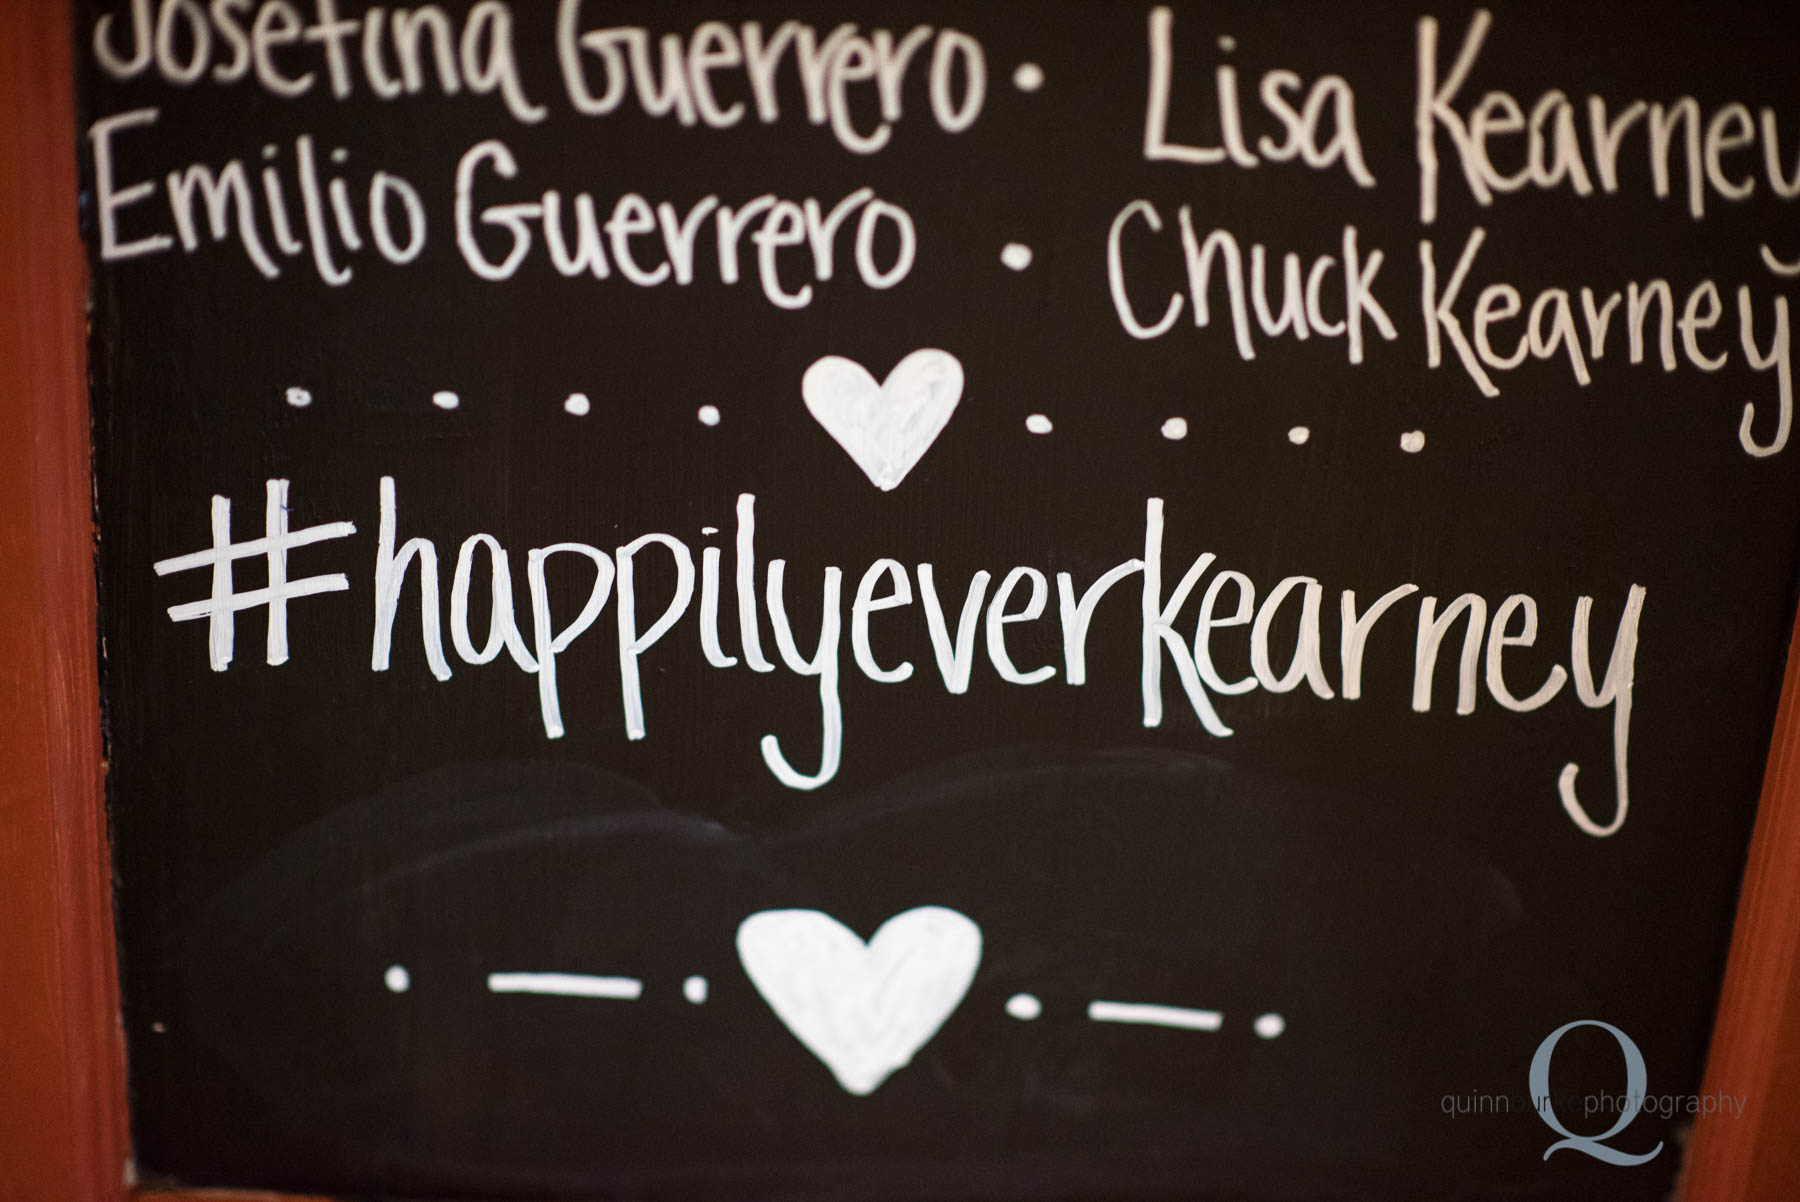 Josefina Guerrero • Lisa Kearney
Emilio Guerrero • Chuck Kearney
#happilyeverkearney
Q
quinnburkephotography